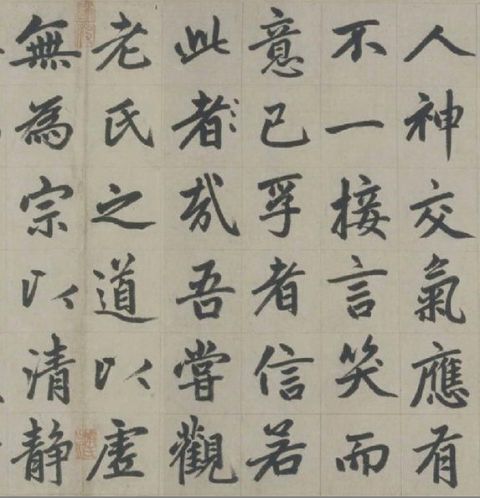 人神交氣應有
不一接言笑而
意已孚者信若
此者哉吾嘗觀
老氏之道以虛
無為宗以清靜